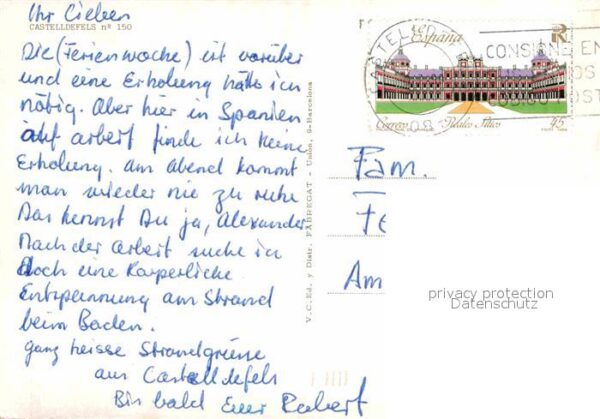 Ihr Lieben
CASTELLDEFELS nº 150
Die (Ferienwoche) ist vorüber
und eine Erholung hätte ich
nötig. Aber hier in Spanien
auf arbeit finde ich keine
Erholung. am Abend kommt
man wieder nie zu ruhe
Das kennst Du ja, Alexander
Nach der arbeit suche ich
doch eine Körperliche
Entspannung am Strand
beim Baden.
ganz heisse Strandgrüsse
aus Castelldefels
Bis bald Euer Robert
V.C. Ed. y Distr. FABREGAT - Unión, 9-Barcelona
España
CASTELLD
CONSIGNE EN
OS
OST
Correos
Reales Sitios
45
08
Fam.
Fe
Am
privacy protection
Datenschutz